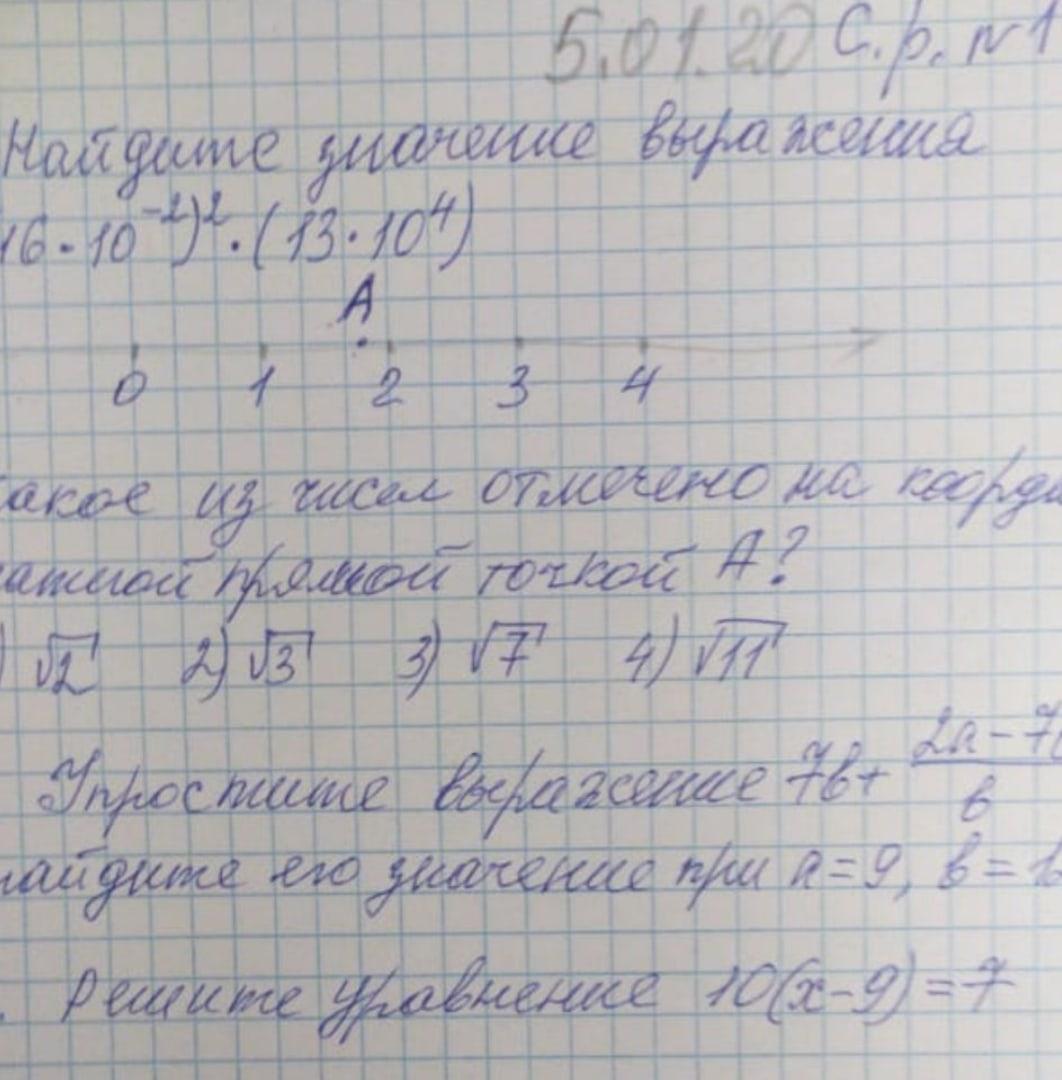 5.01.20 С.р. №1
Найдите значение выражения
16·10⁻²)²·(13·10⁴)
A
0 1 2 3 4
акое из чисел отмечено на коорди
атной прямой точкой А?
) √2 2) √3 3) √7 4) √11
Упростите выражение 7b + (2a - 7b
b
айдите его значение при a=9, b=1
. Решите уравнение 10(x-9)=7